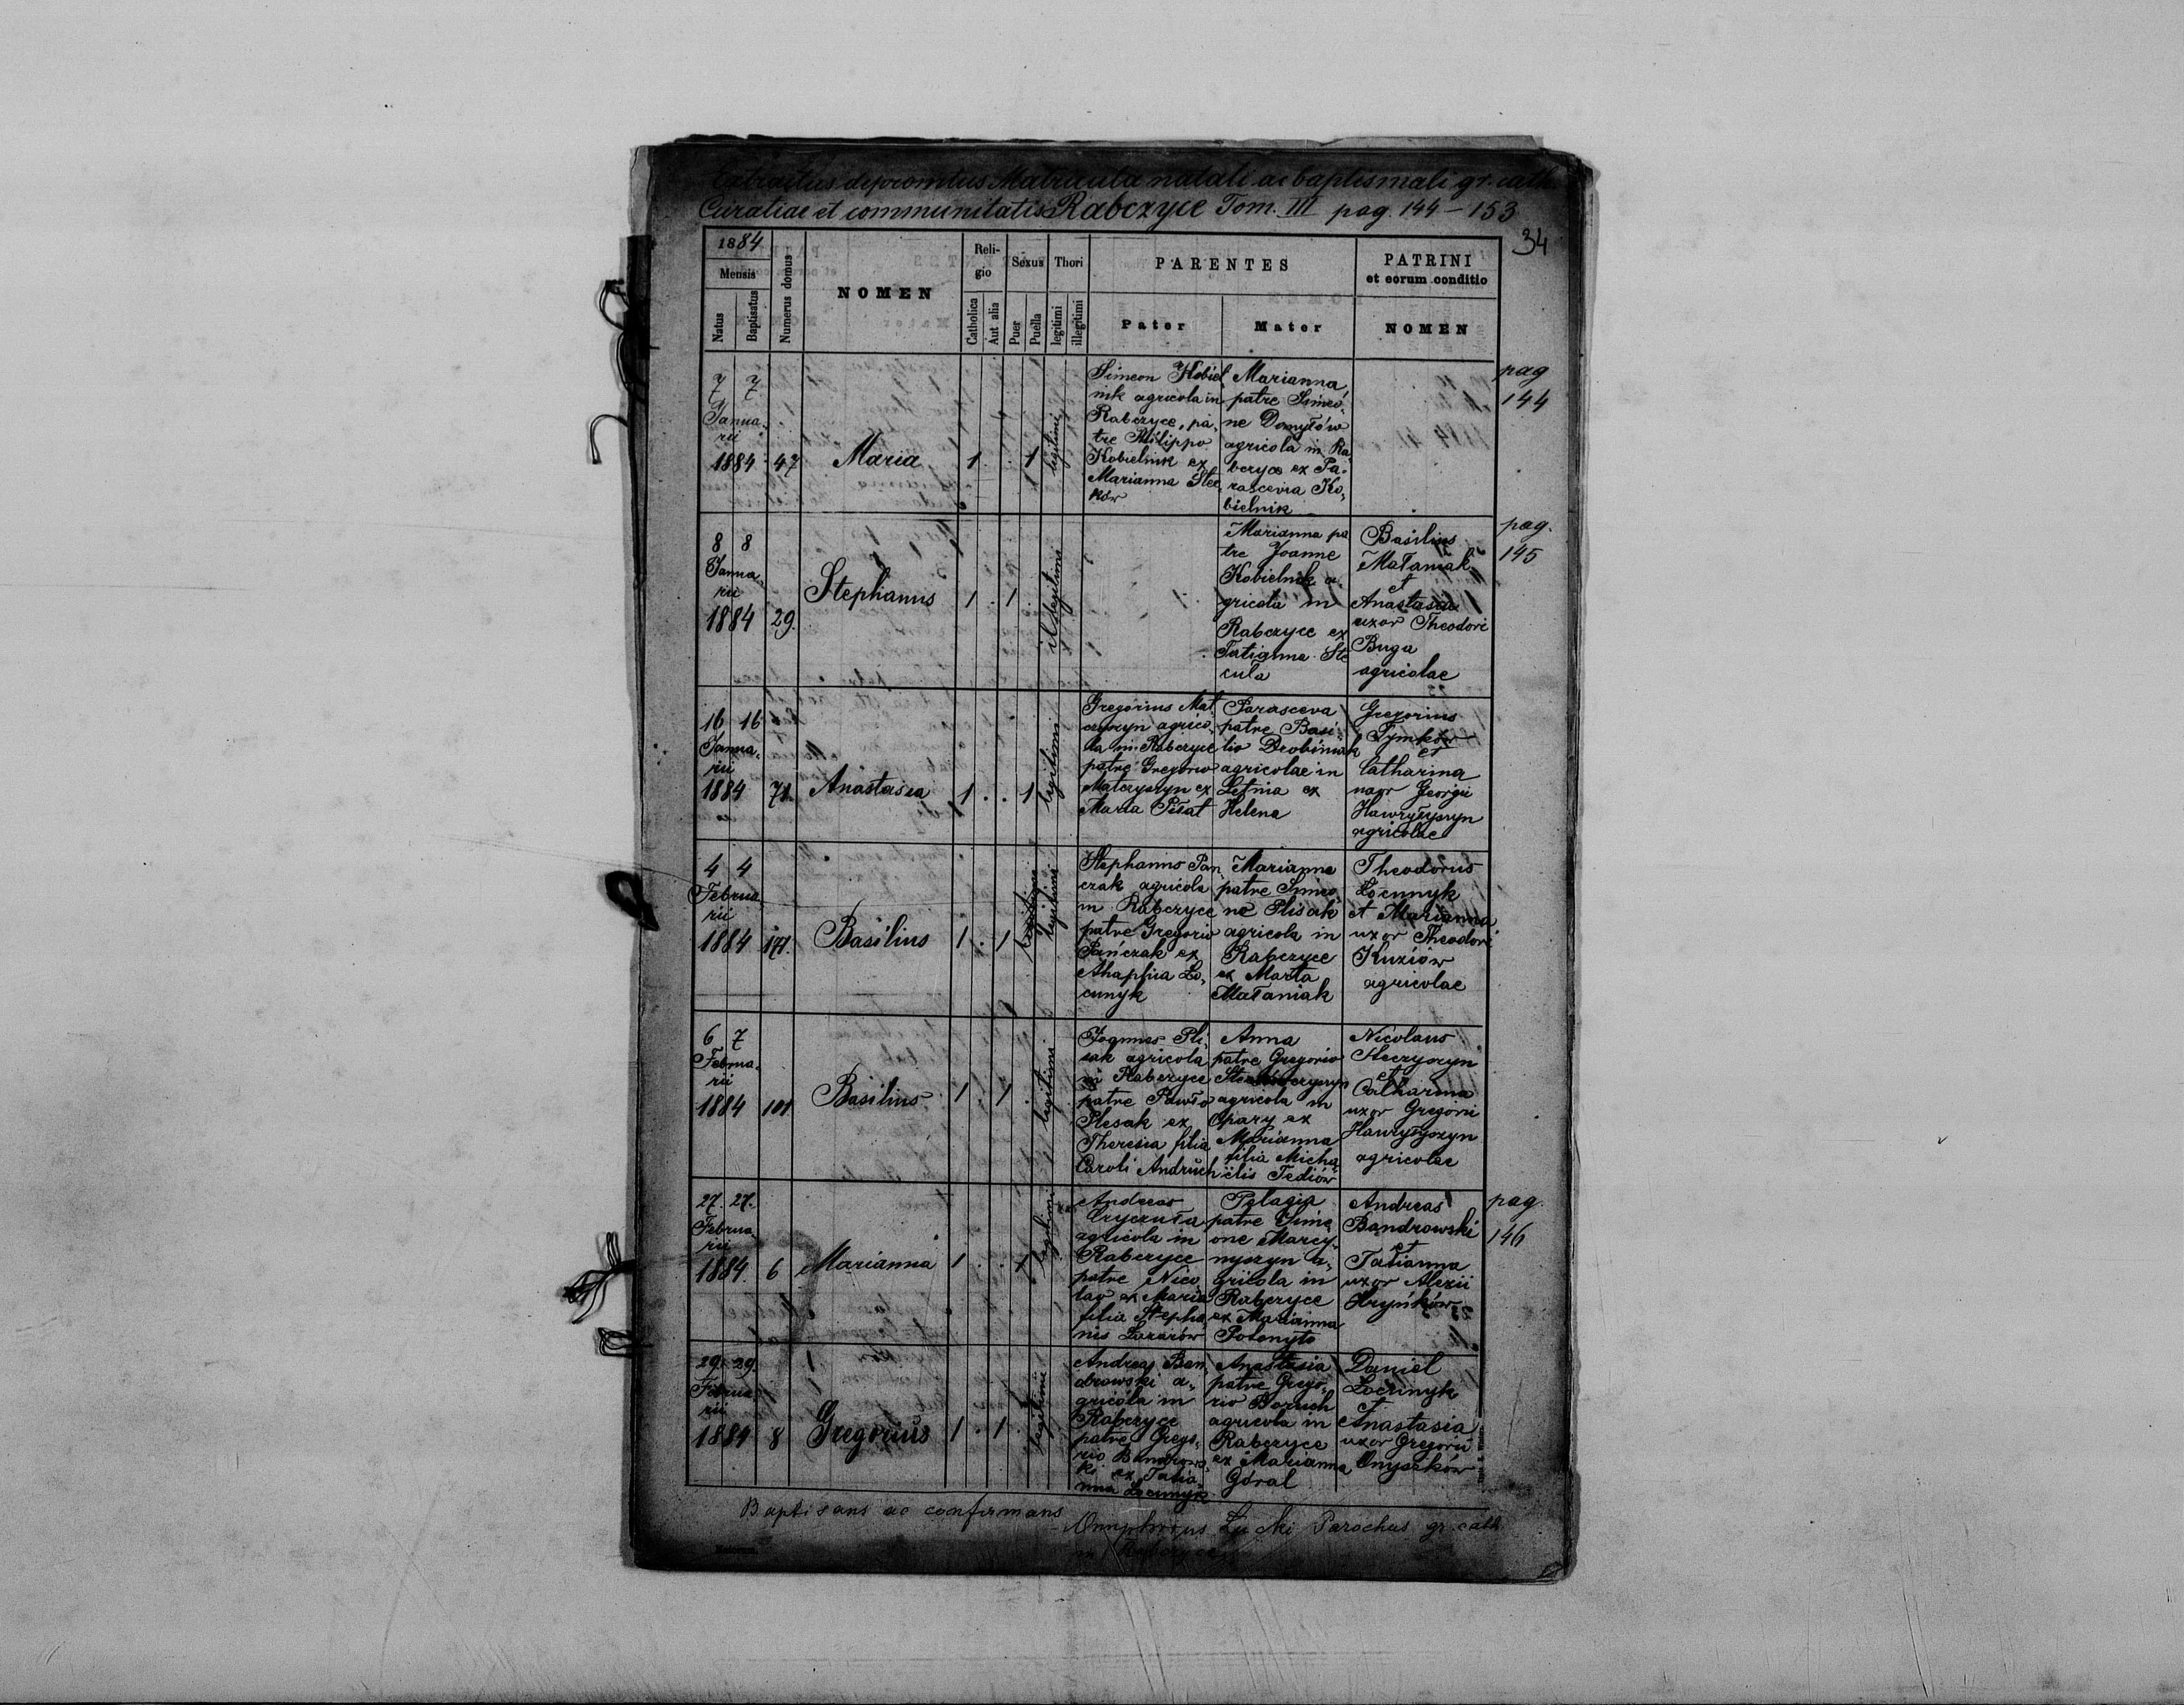 Extractus depromtus Matricula natali ac baptismali gr. cath.
Curatiae et communitatis Rabczyce Tom. III pag. 144 – 153
34
1884
Mensis
Natus
Baptisatus
Numerus domus
NOMEN
Reli-
gio
Catholica
Aut alia
Sexus
Puer
Puella
Thori
legitimi
illegitimi
PARENTES
Pater
Mater
PATRINI
et eorum conditio
NOMEN
7 7
Janua-
rii
1884 47
Maria
1 . . 1
legitimi
Simeon Kobiel
nik agricola in
Rabczyce, pa-
tre Philippo
Kobielnik ex
Marianna Stec
ków
Marianna
patre Simeo-
ne Domytów
agricola in Ra
bczyce ex Pa-
rascevia Ko-
bielnik
pag
144
8 8
Janua-
rii
1884 29.
Stephanus
1 . 1
illegitimi
Marianna pa
tre Joanne
Kobielnik a-
gricola in
Rabczyce ex
Tatianna Ste
cuła
Basilius
Mataniak
et
Anastasia
uxor Theodori
Buga
agricolae
pag.
145
16 16
Janua-
rii
1884 71.
Anastasia
1 . . 1
legitimi
Gregorius Mat
czyszyn agrico-
la in Rabczyce
patre Gregorio
Matczyszyn ex
Maria Pisat
Parasceva
patre Basi-
lio Drobiniak
agricolae in
Letnia ex
Helena
Gregorius
Tymków
et
Catharina
uxor Georgii
Hawryłyszyn
agricolae
4 4
Februa-
rii
1884 171.
Basilius
1 . 1
legitimi
legitimi
Stephanus Pan
czak agricola
in Rabczyce
patre Gregorio
Pańczak ex
Ahaphia Lo-
cunyk
Marianna
patre Simeo
ne Plisak
agricola in
Rabczyce
ex Marta
Mataniak
Theodorus
Locunyk
et Marianna
uxor Theodori
Kuziów
agricolae
6 7
Februa-
rii
1884 101
Basilius
1 . 1 .
legitimi
Joannes Pli-
sak agricola
in Rabczyce
patre Pawło
Plesak ex
Theresia filia
Caroli Andruch
Anna
patre Gregorio
agricola in
Opary ex
Marianna
filia Micha
ëlis Fediów
Nicolaus
Steczyszyn
et
Catharina
uxor Gregorii
Hawryłyszyn
agricolae
27. 27.
Februa-
rii
1884. 6
Marianna
1 . . 1
legitimi
Andreas
agricola in
Rabczyce
patre Nico
lao ex Maria
filia Stepha
nis Lazarów
Pelagia
patre Sime
one Marcy-
nyszyn a-
gricola in
Rabczyce
ex Marianna
Andreas
Bandrowski
et
Tatianna
uxor Alexii
Hryńków
pag.
146
29. 29.
Februa-
rii
1884 8
Gregorius
1 . 1 .
legitimi
Andreas Ban
drowski a-
gricola in
Rabczyce
patre Grego-
rio Bandrows-
ki ex Tatia-
nna Locunyk
Anastasia
patre Grego-
rio Boruch
agricola in
Rabczyce
ex Marianna
Góral
Daniel
Locunyk
et
Anastasia
uxor Gregorii
Onyszków
Baptisans ac confirmans
Onuphrius Łucki Parochus gr. cath.
in Rabczyce